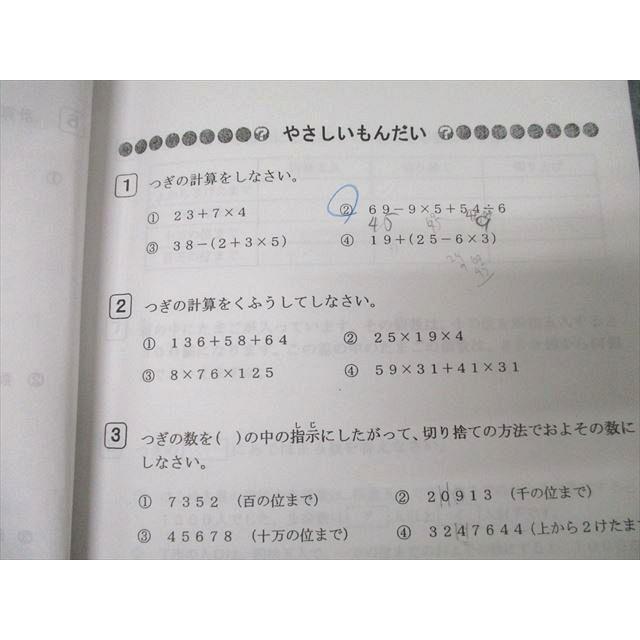 やさしいもんだい
1 つぎの計算をしなさい。
① 23+7×4 ② 69−9×5+54÷6
45 45 9
③ 38−(2+3×5) ④ 19+(25−6×3)
2 つぎの計算をくふうしてしなさい。
① 136+58+64 ② 25×19×4
③ 8×76×125 ④ 59×31+41×31
3 つぎの数を( )の中の指示にしたがって、切り捨ての方法でおよその数に
しじ
しなさい。
① 7352 (百の位まで) ② 20913 (千の位まで)
③ 45678 (十万の位まで) ④ 3247644(上から2けたま